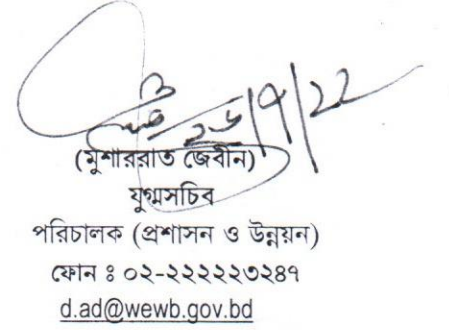 ২৬/৭/২২
(মুশাররাত জেবীন)
যুগ্মসচিব
পরিচালক (প্রশাসন ও উন্নয়ন)
ফোন ঃ ০২-২২২২২৩২৪৭
d.ad@wewb.gov.bd